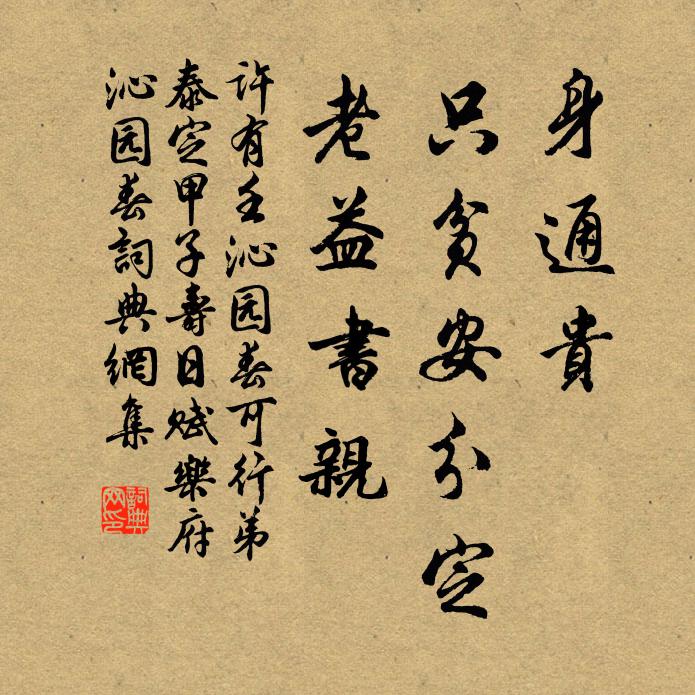 身通貴
只貧安分定
老益書親
許有壬沁园春可行弟
泰定甲子壽日赋樂府
沁园春詞典網集
詞典
网印